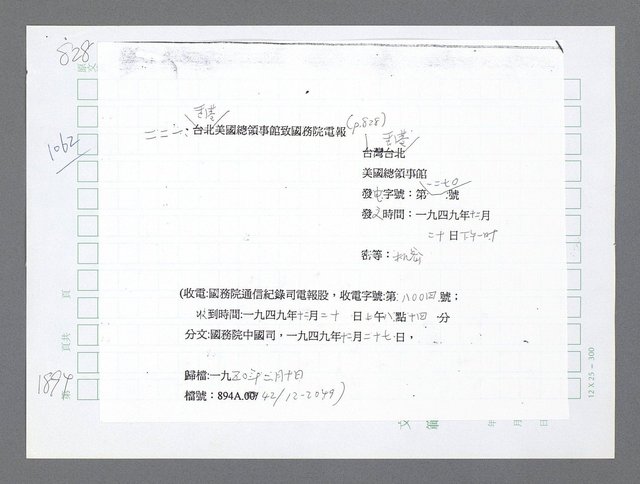 828
1062
二二六：台北美國總領事館致國務院電報 (p.828)
台灣台北
美國總領事館
發電字號：第一二七〇號
發文時間：一九四九年十二月
二十日下午一時
密等：機密
(收電:國務院通信紀錄司電報股，收電字號:第八〇〇四號；
收到時間:一九四九年十二月二十日上午八點十四分
分文:國務院中國司，一九四九年十二月二十七日，
歸檔:一九五〇年二月十日
檔號：894A.00/42/12-2049)
頁
頁共
第
1894
年 月 日
12 X 25 － 300